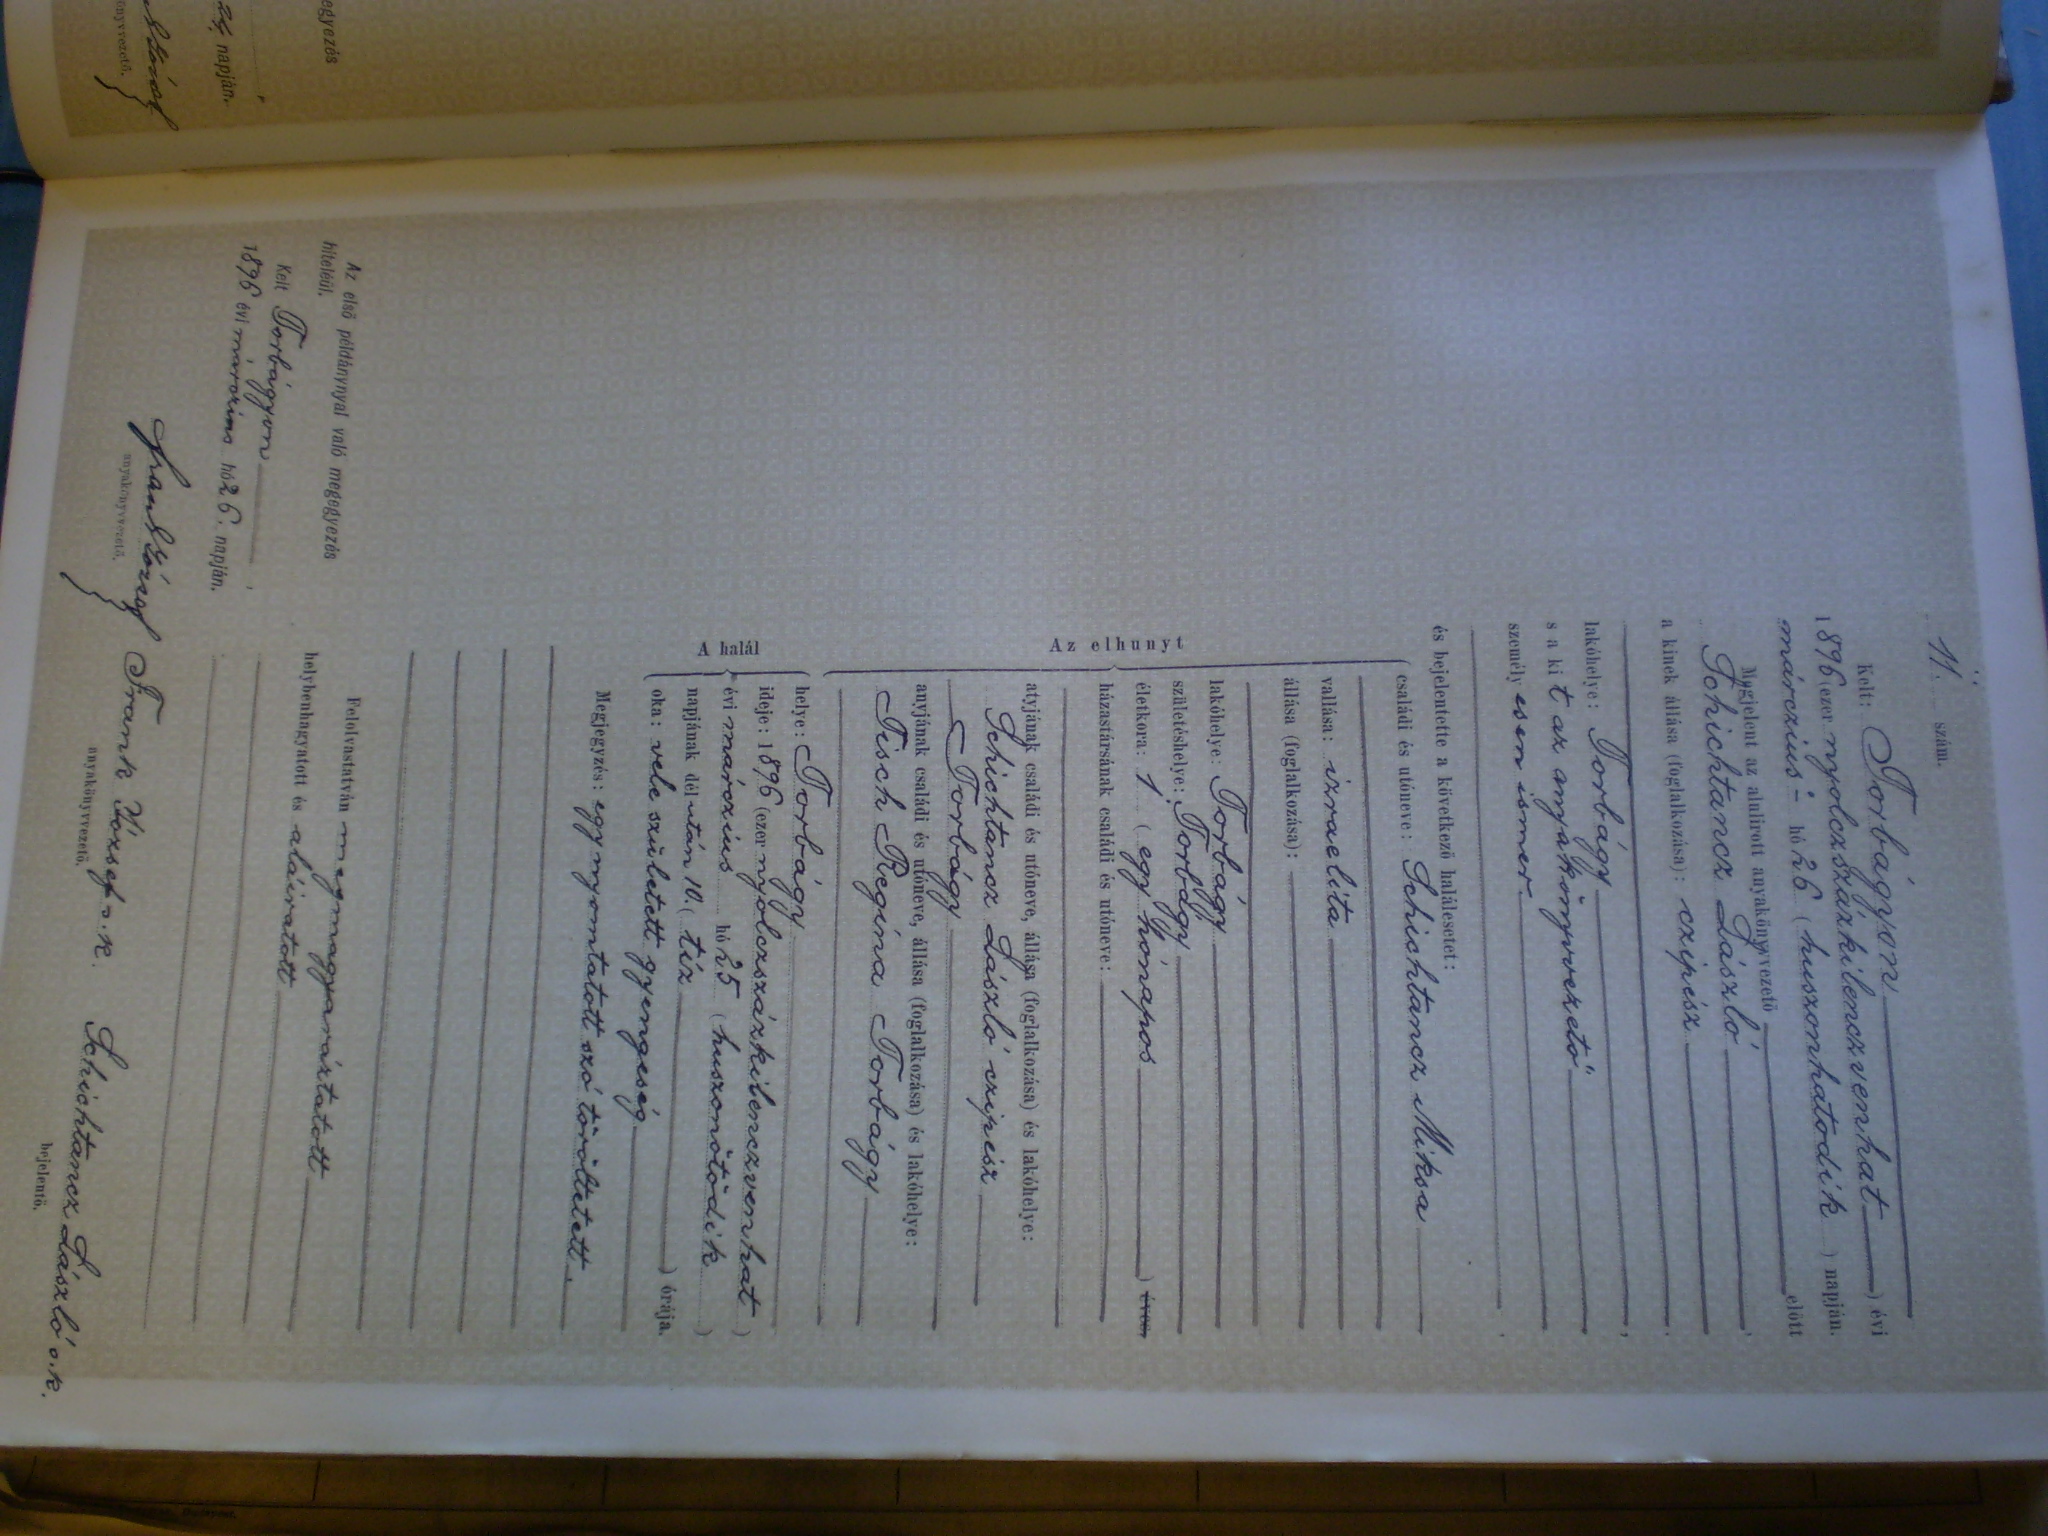 egyezés
24 napján.
11. szám.
Kelt: Torbágyon
1896 (ezer nyolczszázkilenczvenhat) évi
márczius hó 26 (huszonhatodik) napján.
Megjelent az alulirott anyakönyvvezető előtt
Schichtancz László,
a kinek állása (foglalkozása): czipész
.
lakóhelye: Torbágy,
s a kit az anyakönyvvezető
személyesen ismer.
és bejelentette a következő halálesetet:
Az elhunyt
családi és utóneve: Schichtancz Miksa
vallása: izraelita
állása (foglalkozása):
lakóhelye: Torbágy
születéshelye: Torbágy
életkora: 1 (egy hónapos) éves
házastársának családi és utóneve:
atyjának családi és utóneve, állása (foglalkozása) és lakóhelye:
Schichtancz László czipész
Torbágy
anyjának családi és utóneve, állása (foglalkozása) és lakóhelye:
Fisch Regina Torbágy
A halál
helye: Torbágy
ideje: 1896 (ezer nyolczszázkilenczvenhat)
évi márczius hó 25 (huszonötödik)
napjának délután 10. (tíz) órája.
oka: vele született gyengeség
Megjegyzés: egy nyomtatott szó töröltetett.
Felolvastatván megmagyaráztatott
helybenhagyatott és aláiratott
Az első példánynyal való megegyezés
hiteléül.
Kelt Torbágyon,
1896 évi márczius hó 26. napján.
Frank József
anyakönyvvezető.
Frank József s.k.
anyakönyvvezető.
Schichtancz László s.k.
bejelentő.